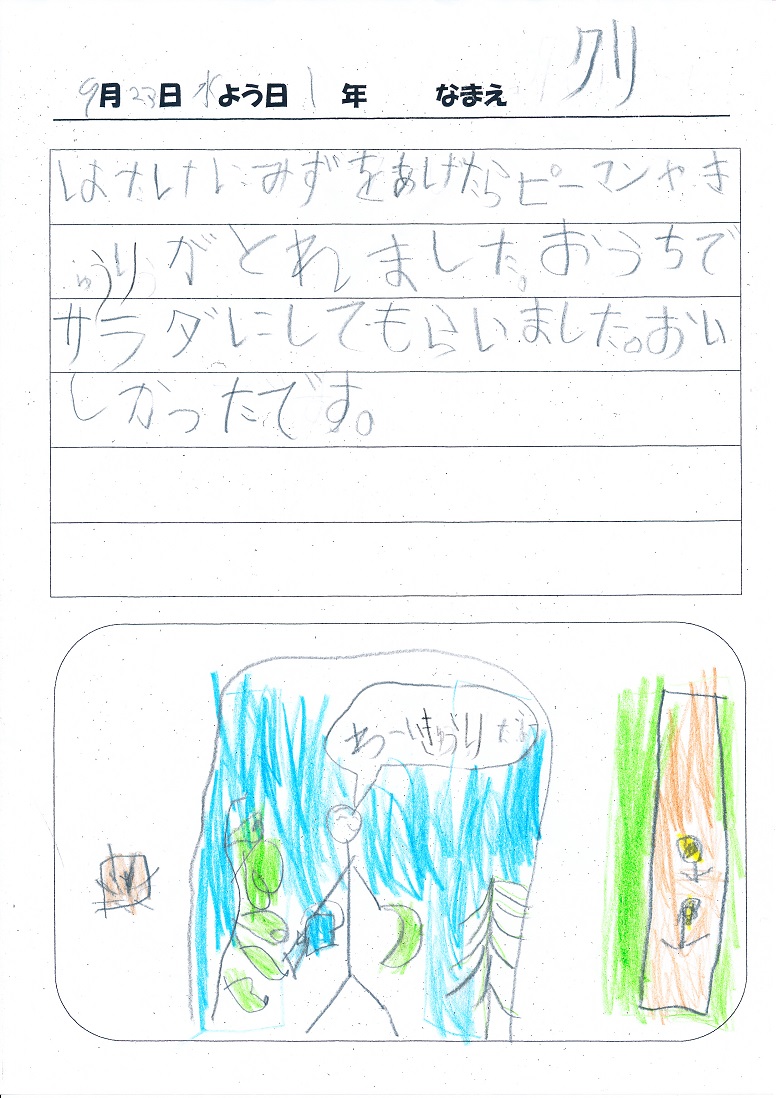 9月23日 水よう日 1年 なまえ クリ
はたけにみずをあげたらピーマンやき
ゅうりがとれました。おうちで
サラダにしてもらいました。おい
しかったです。
わーいきゅうりだ